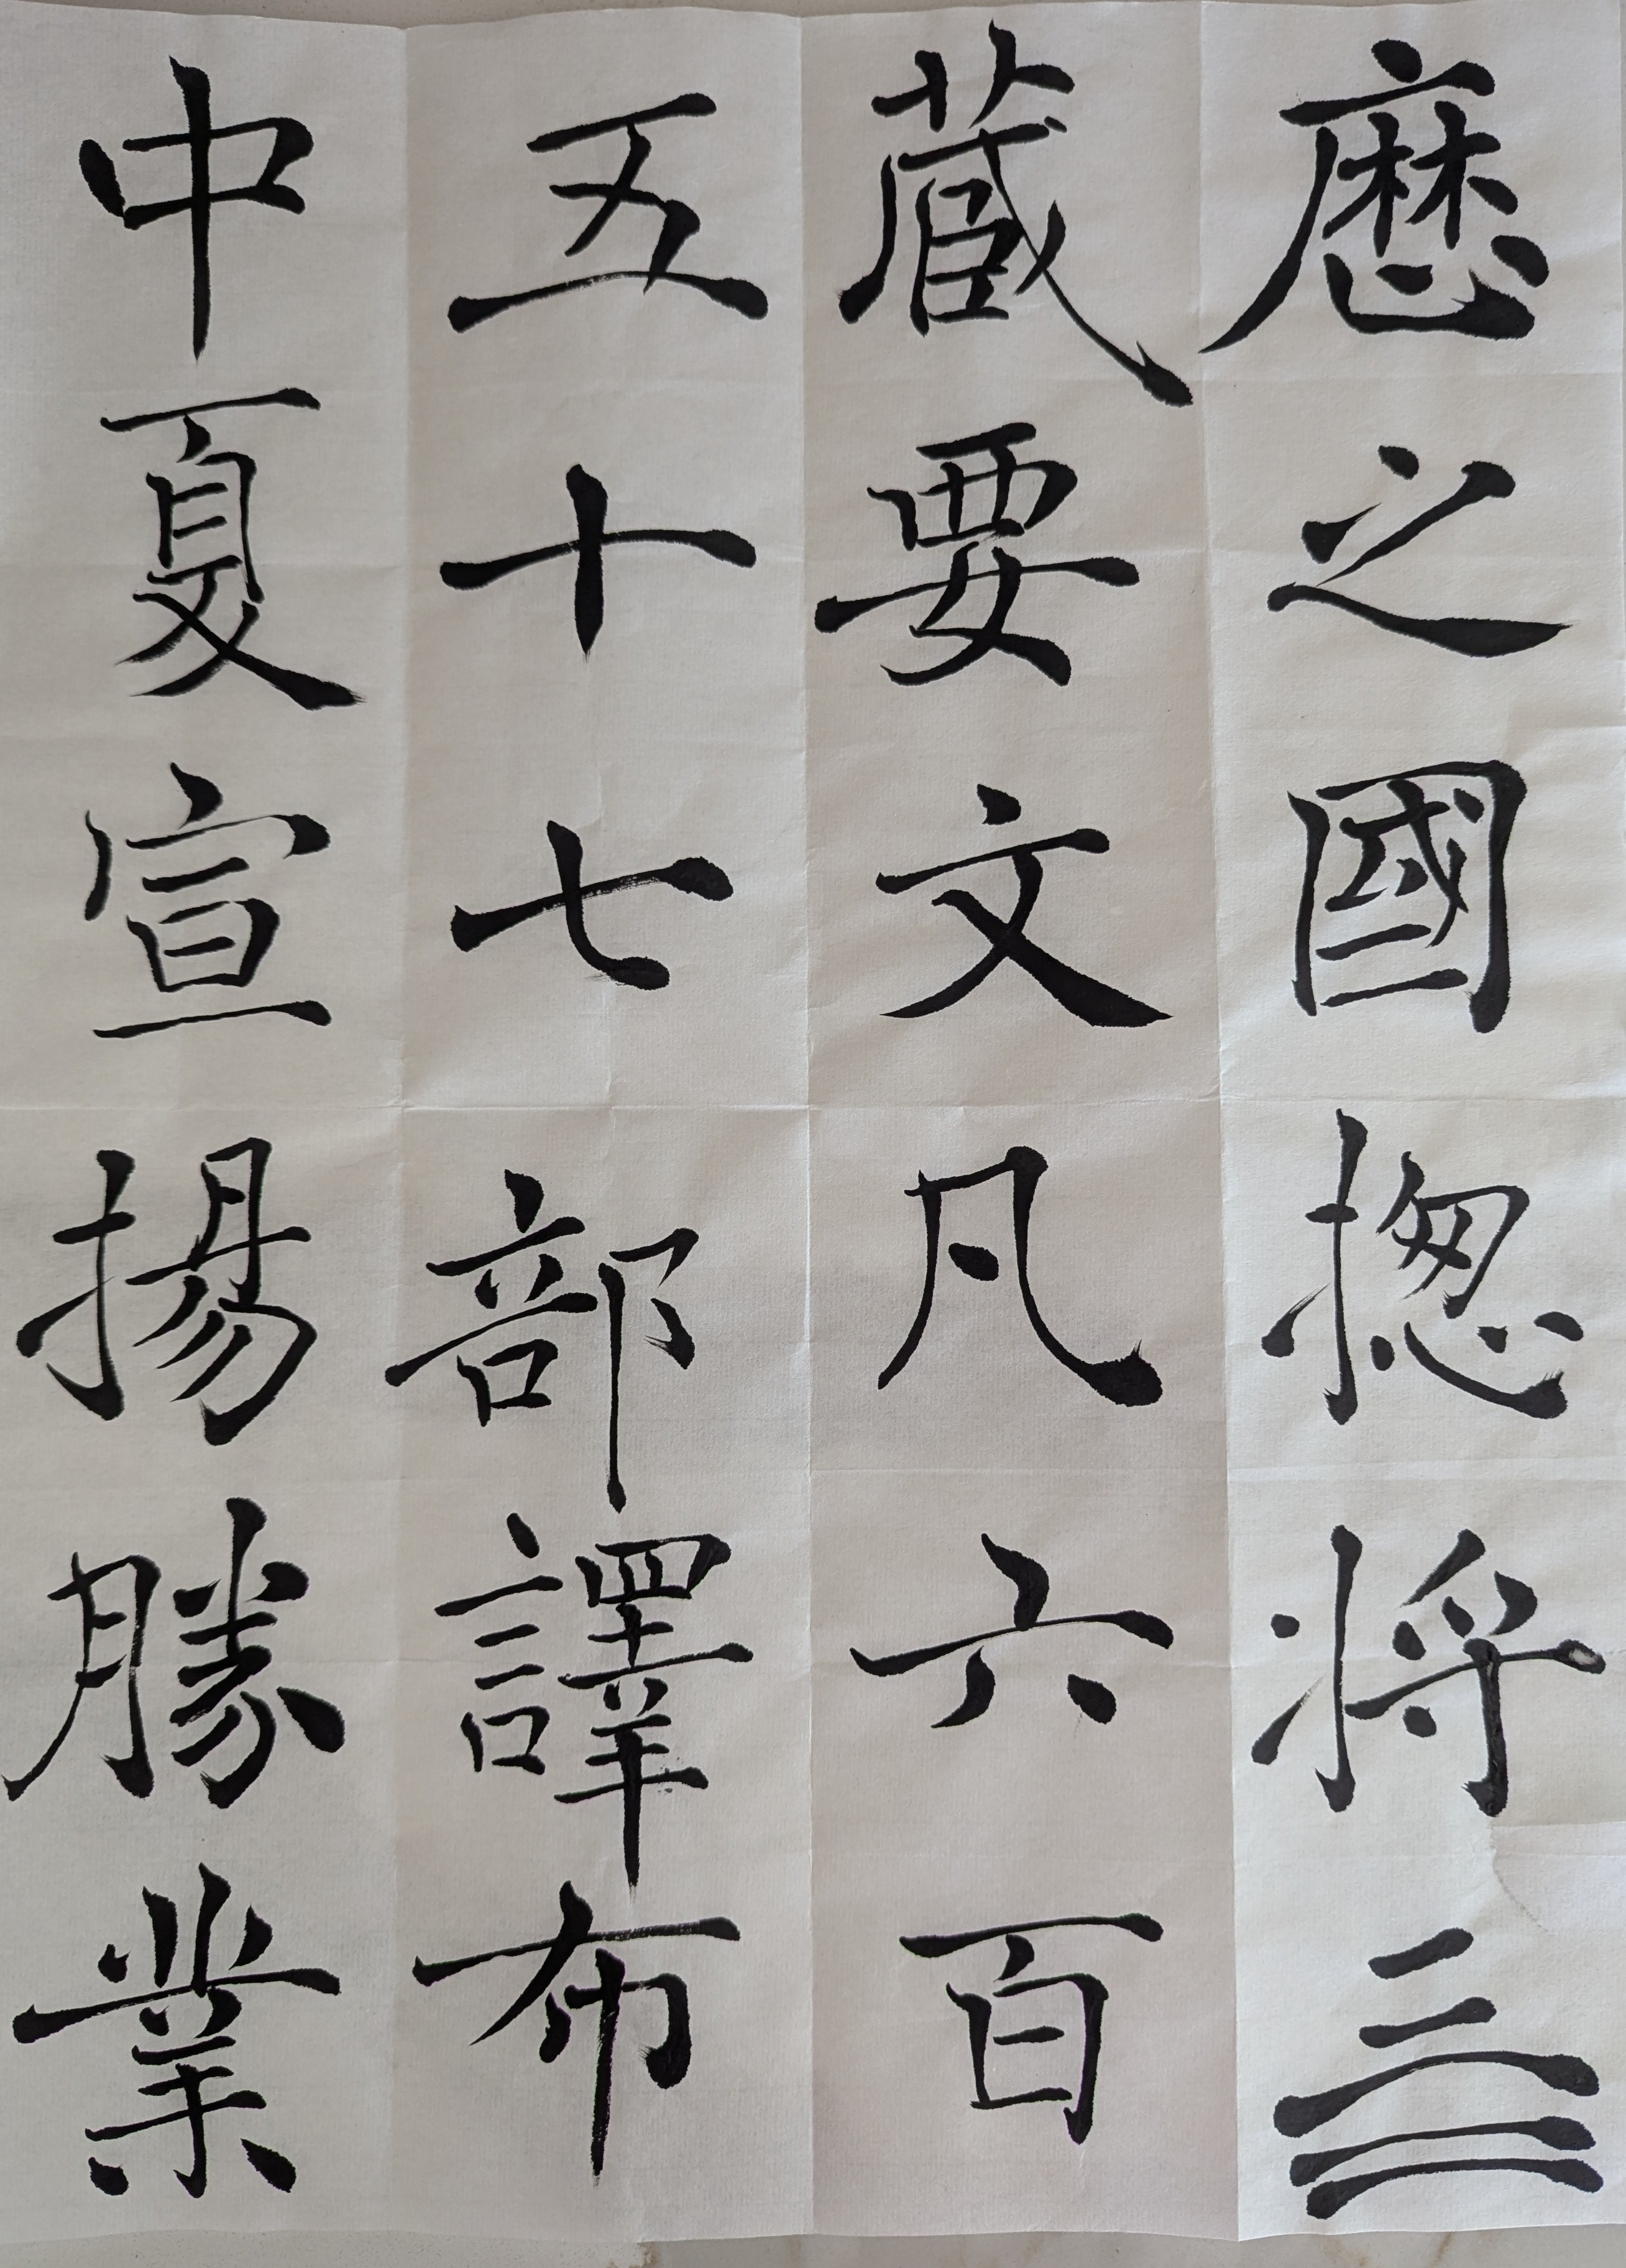 歷之國揔将三
蔵要文凡六百
五十七部譯布
中夏宣揚勝業